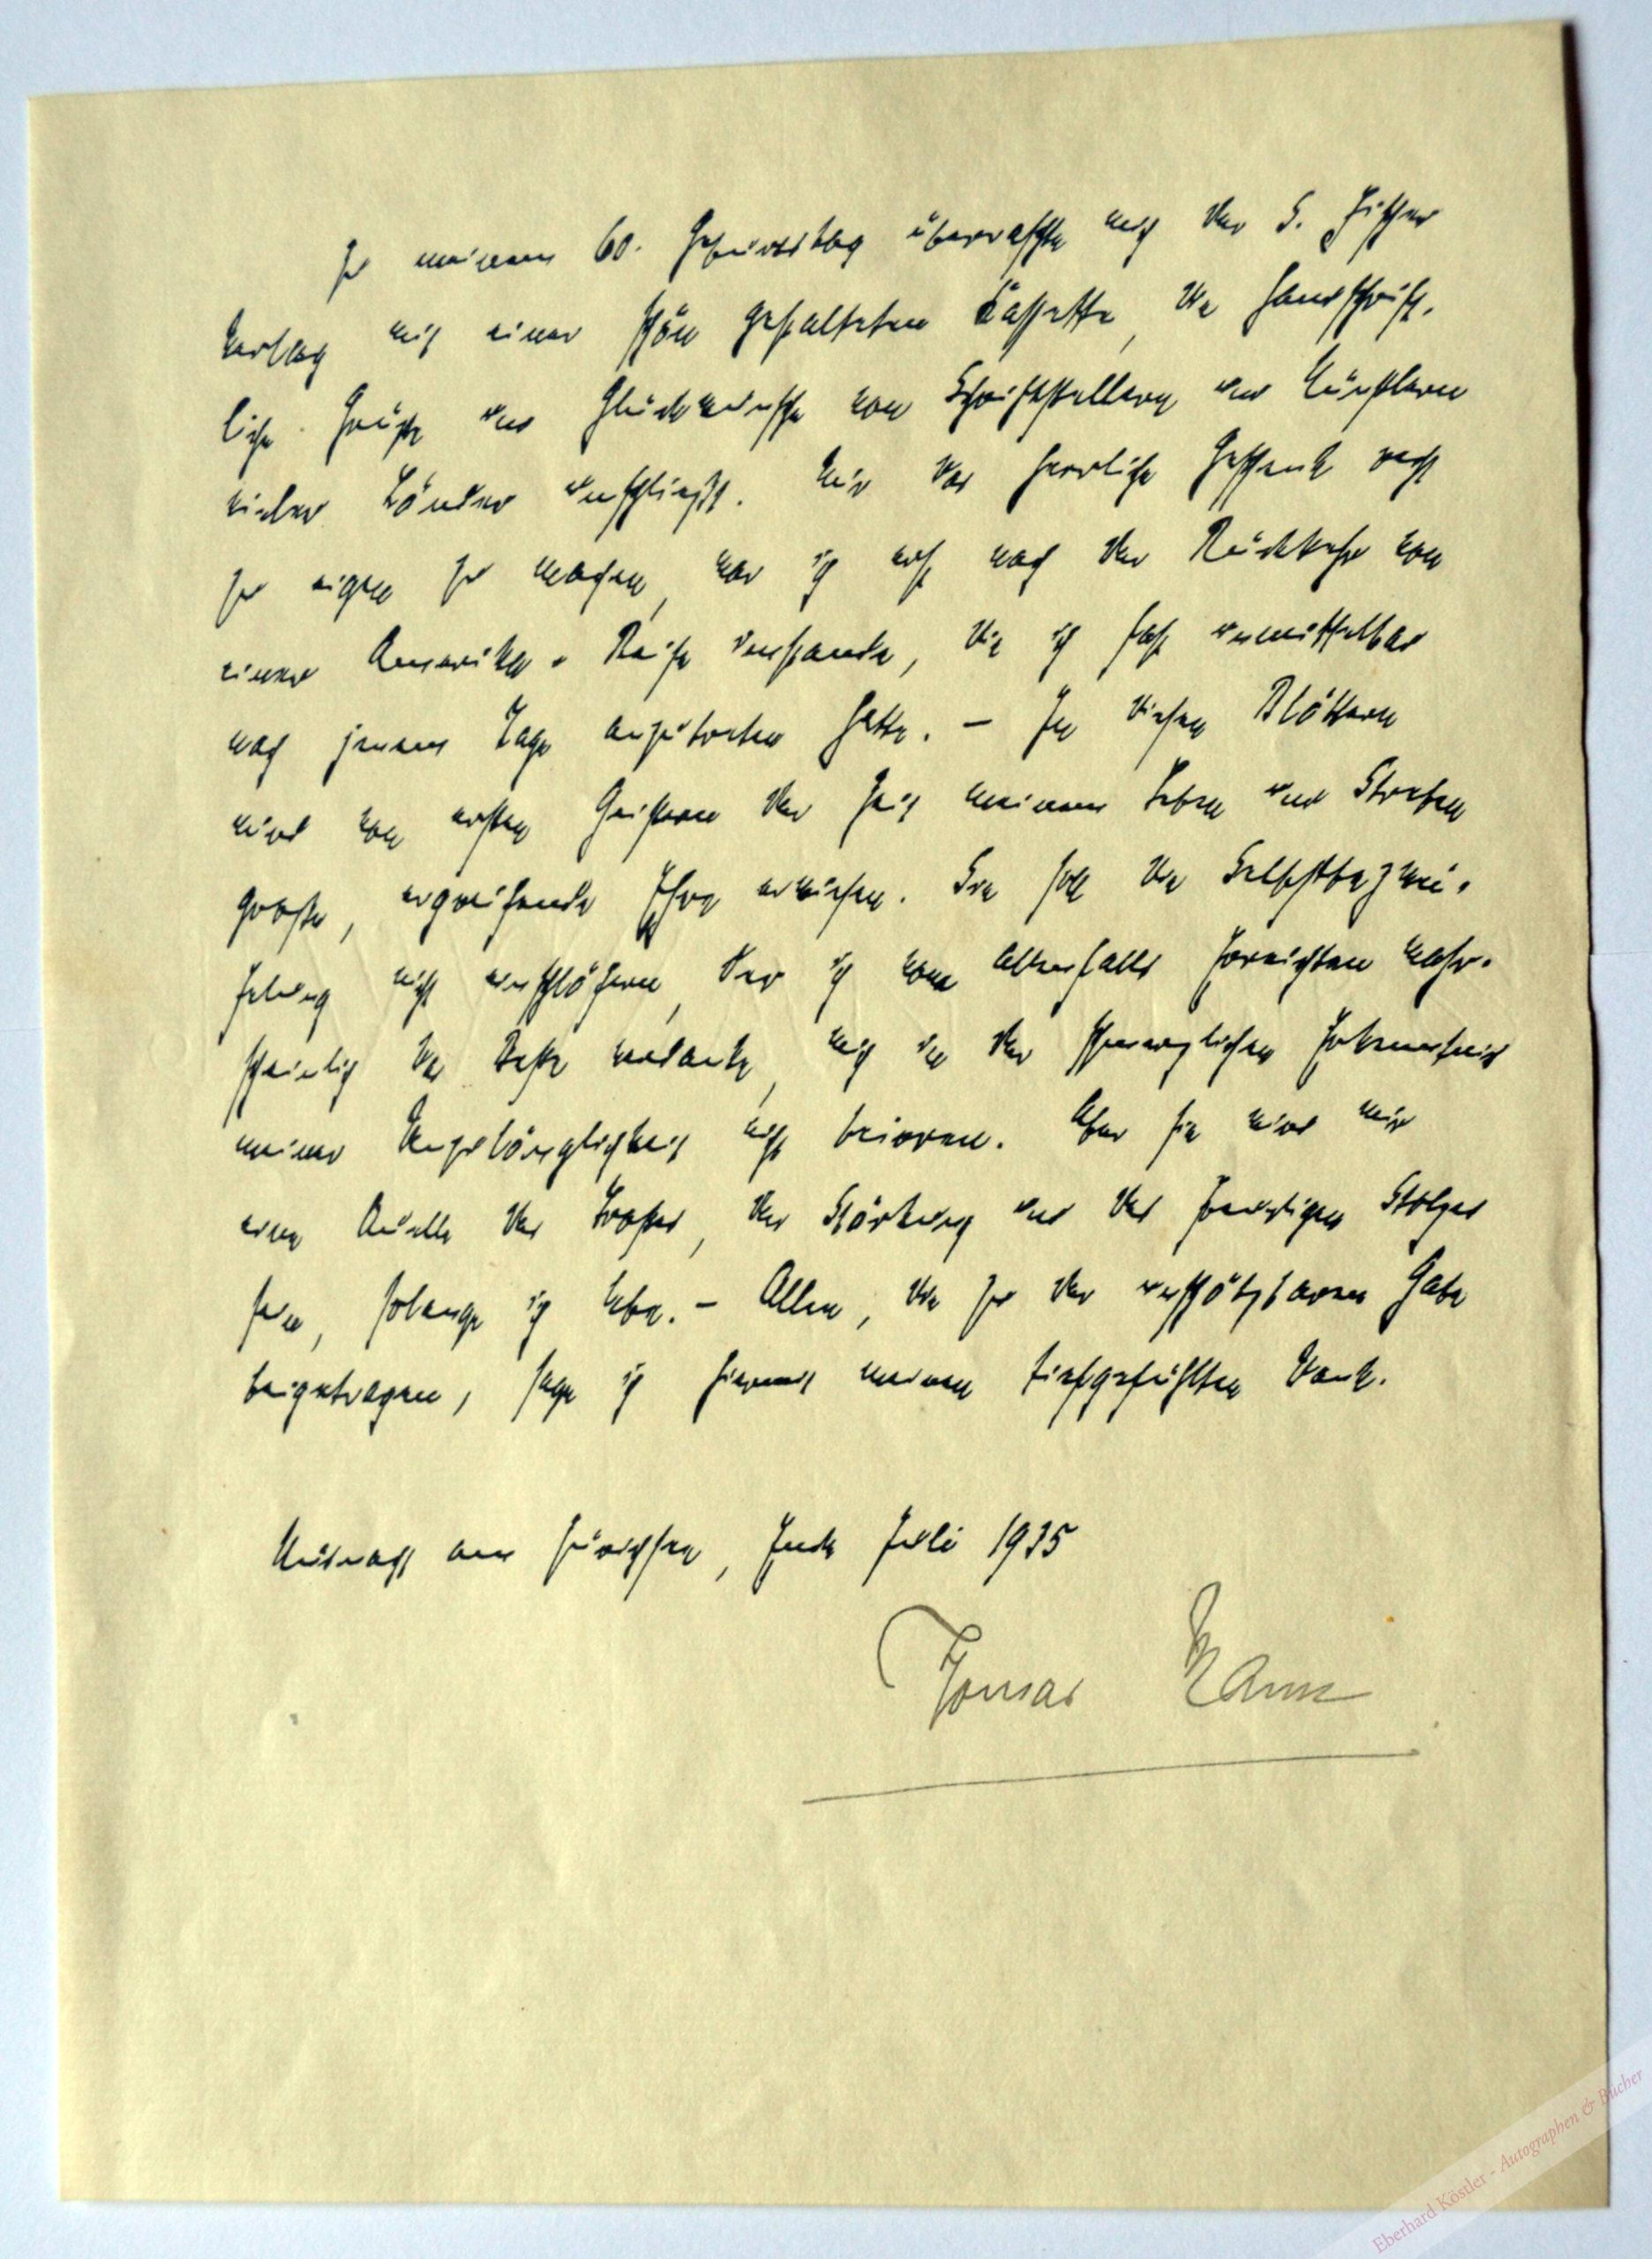 Zu meinem 60. Geburtstag überraschte mich der S. Fischer
Verlag mit einer schön gestalteten Kassette, die handschrift-
liche Grüße und Glückwünsche von Schriftstellern und Künstlern
vieler Länder umschließt. Mir das herrliche Geschenk recht
zu eigen zu machen, war ich erst nach der Rückkehr von
einer Amerika-Reise imstande, die ich fast unmittelbar
nach jenem Tage anzutreten hatte. – In diesen Blättern
wird von ersten Geistern der Zeit meinem Leben und Streben
große, ergreifende Ehre erwiesen. Sie soll die Selbstbezwei-
felung nicht einschläfern, der ich vom allenfalls Erreichten wahr-
scheinlich das Beste verdanke, mich in der schmerzlichen Erkenntnis
meiner Unzulänglichkeit nicht beirren. Aber sie wird mir
eine Quelle des Trostes, der Stärkung und des freudigen Stolzes
sein, solange ich lebe. – Allen, die zu der unschätzbaren Gabe
beigetragen, sage ich hiermit meinen tiefgefühlten Dank.
Küsnacht am Zürichsee, Ende Juli 1935
Thomas Mann
Eberhard Köstler - Autographen & Bücher